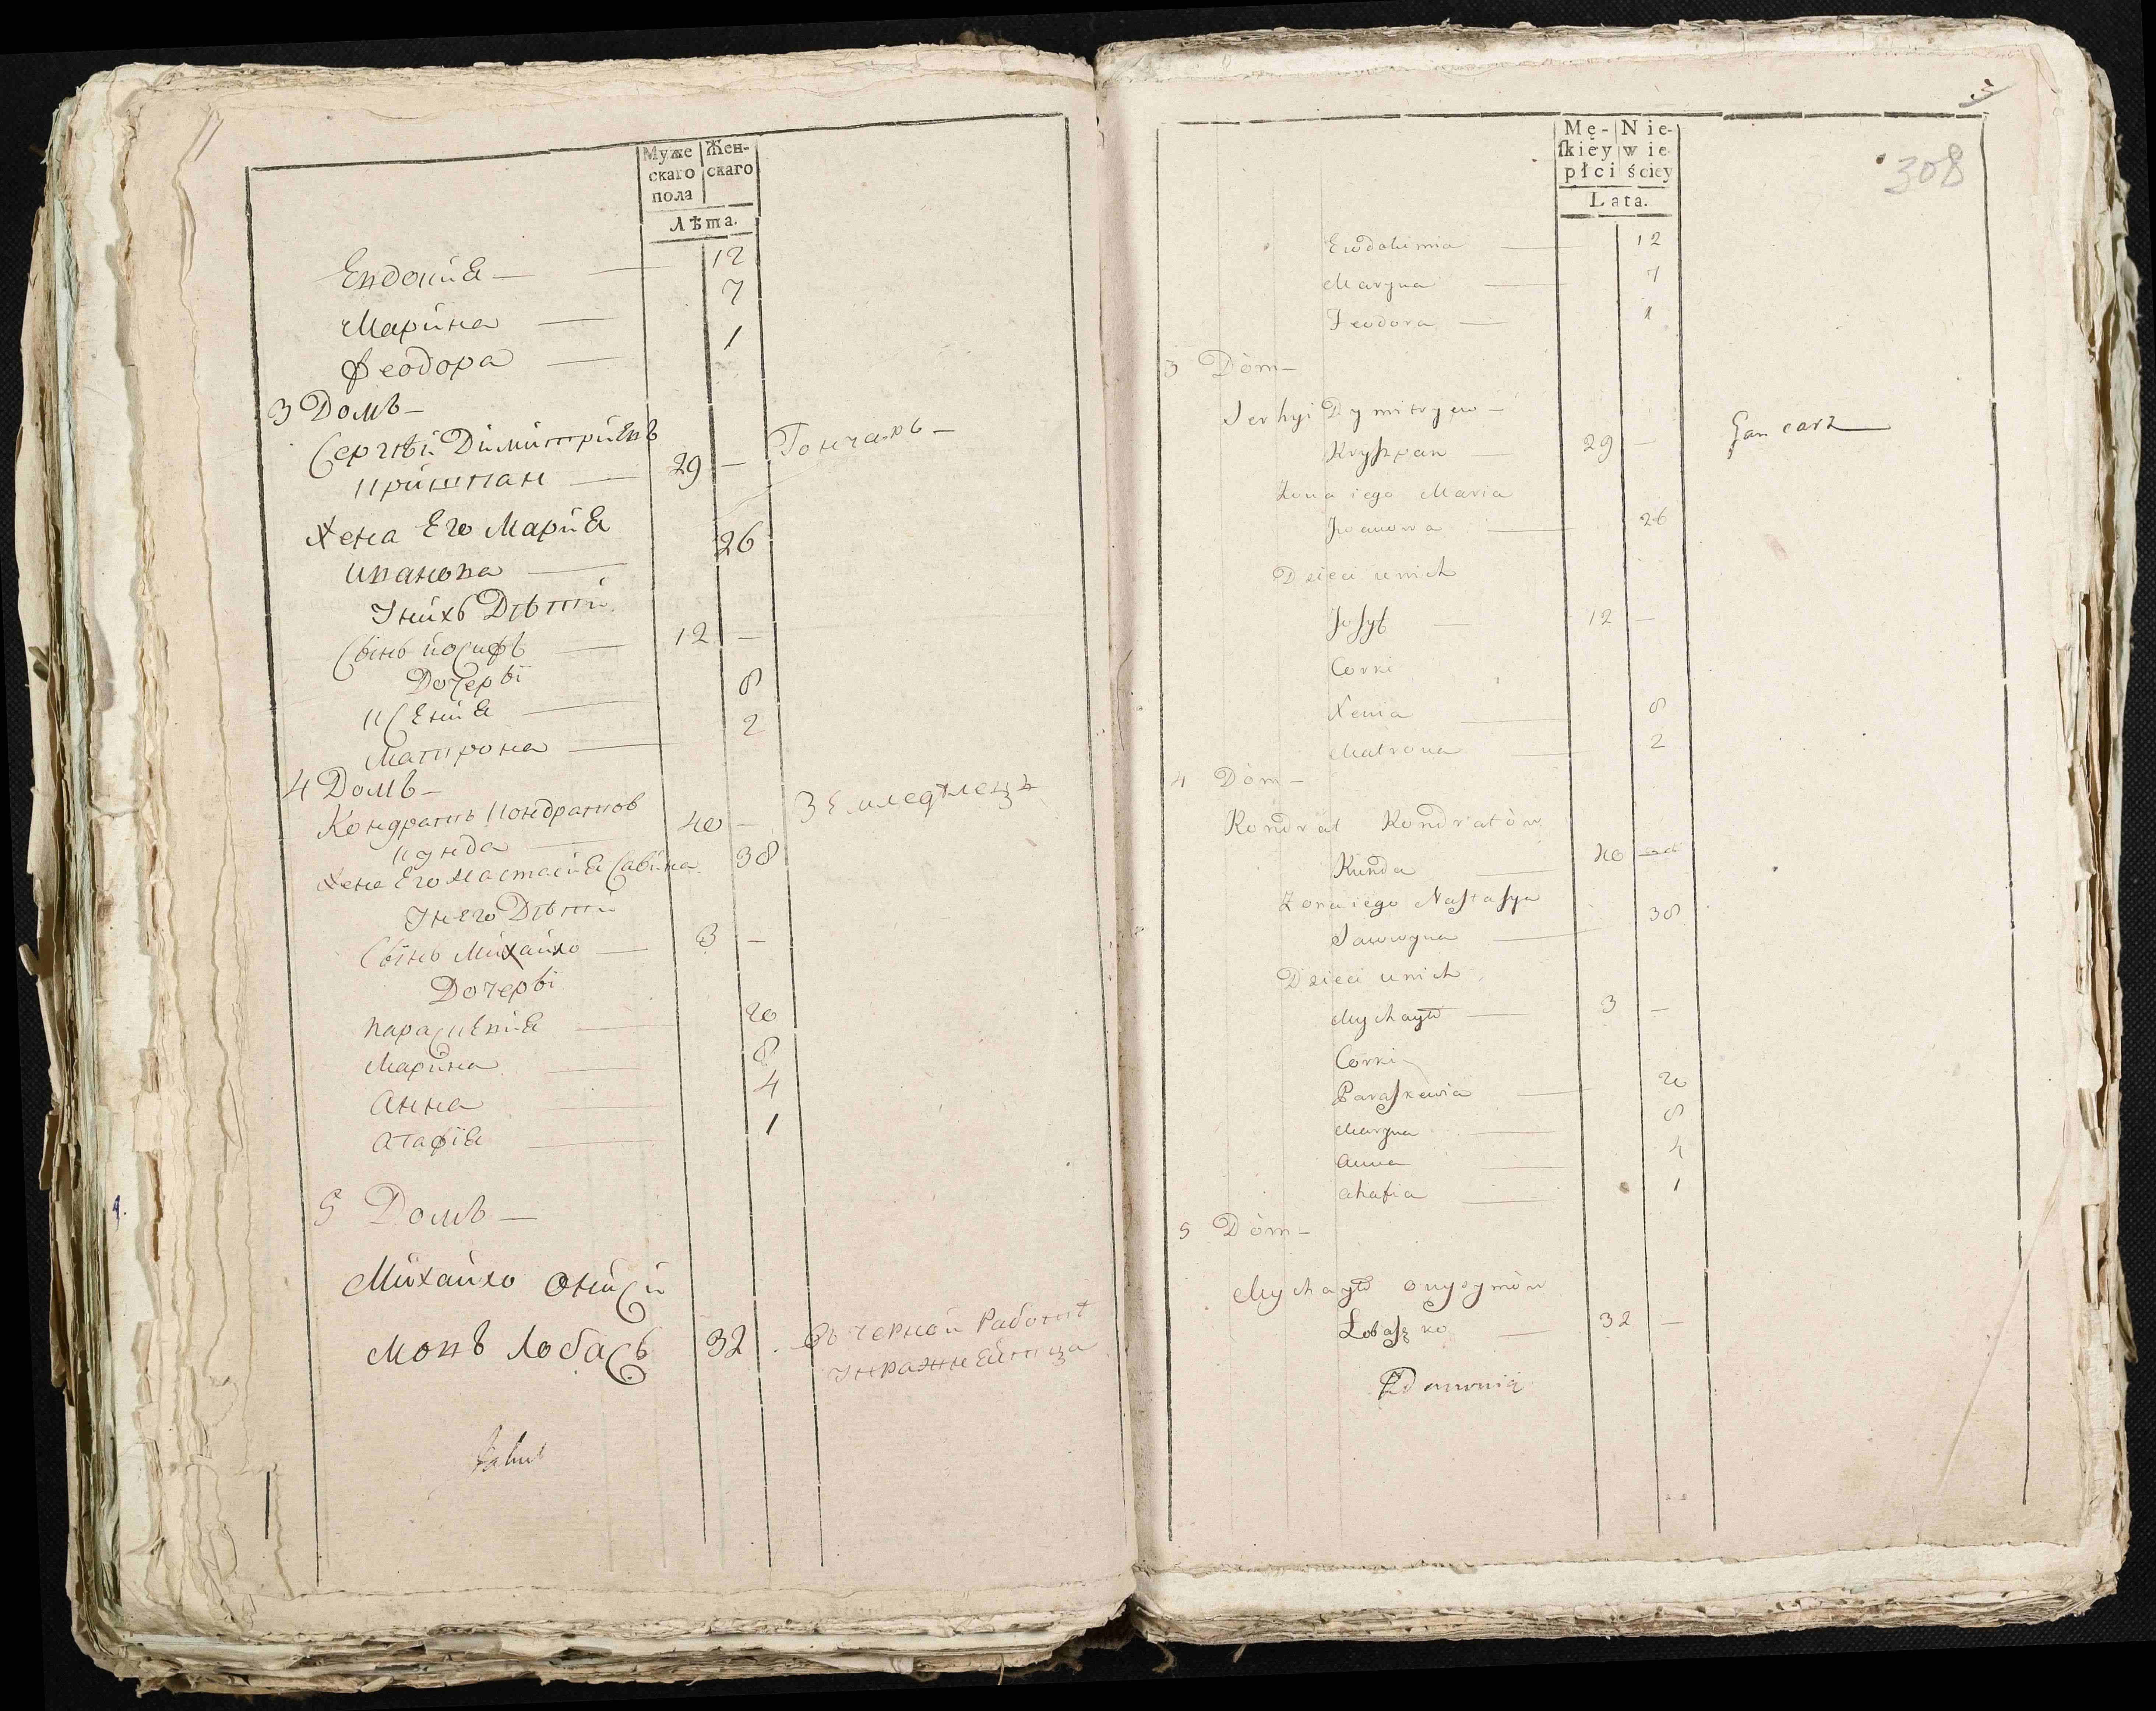 Муже Жен-
скаго скаго
пола
Лѣта.
Евдокия — 12
Марина — 7
Феодора — 1
3 Домъ —
Сергѣй Димитриевъ
Кришпан — 29 — Гончаръ —
Жена Его Мария
Иванова — 26
У нихъ Дѣти
Сынъ Иосифъ — 12 —
Дочеръи
Ксения — 8
Матрона — 2
4 Домъ —
Кондратъ Кондратов
Кунда — 40 — Земледѣлецъ
Жена Его Настасия Савина 38
У него Дѣти
Сынъ Михайло — 3 —
Дочеръи
Параскевия — 20
Марина — 8
Анна — 4
Агафия — 1
5 Домъ —
Михайло Ониси
мовъ Лобасъ 32 . въ черной работѣ
упражняйтца

Mę- Nie-
ſkiey wie
płci ściey
Lata.
308
Ewdokimia — 12
Maryna — 7
Feodora — 1
3 Dóm —
Serhyi Dymitryew —
Kryſzpan — 29 — Gancarz
Zona iego Maria
Jwanowa — 26
Dzieci unich
Joſyf — 12 —
Corki
Xenia — 8
Matrona — 2
4 Dóm —
Kondrat Kondratów
Kunda — 40
Zona iego Naſtaſya
Sawwyna — 38
Dzieci unich
Mychayło — 3 —
Corki
Paraſkewia — 20
Maryna — 8
Anna — 4
Ahafia — 1
5 Dóm —
Mychayło Onysymów
Łobaſzko — 32 —